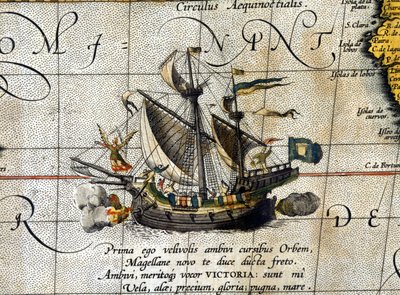 Circulus Aequinoctialis.
OMI NPNT
C. de laguna
Isolas de lobos
Isolas de cuervos.
C. de
R DE
Prima ego velivolis ambivi cursibus Orbem,
Magellane novo te duce ducta freto.
Ambivi, meritoq; vocor VICTORIA: sunt mi
Vela, alæ; precium, gloria; pugna, mare.